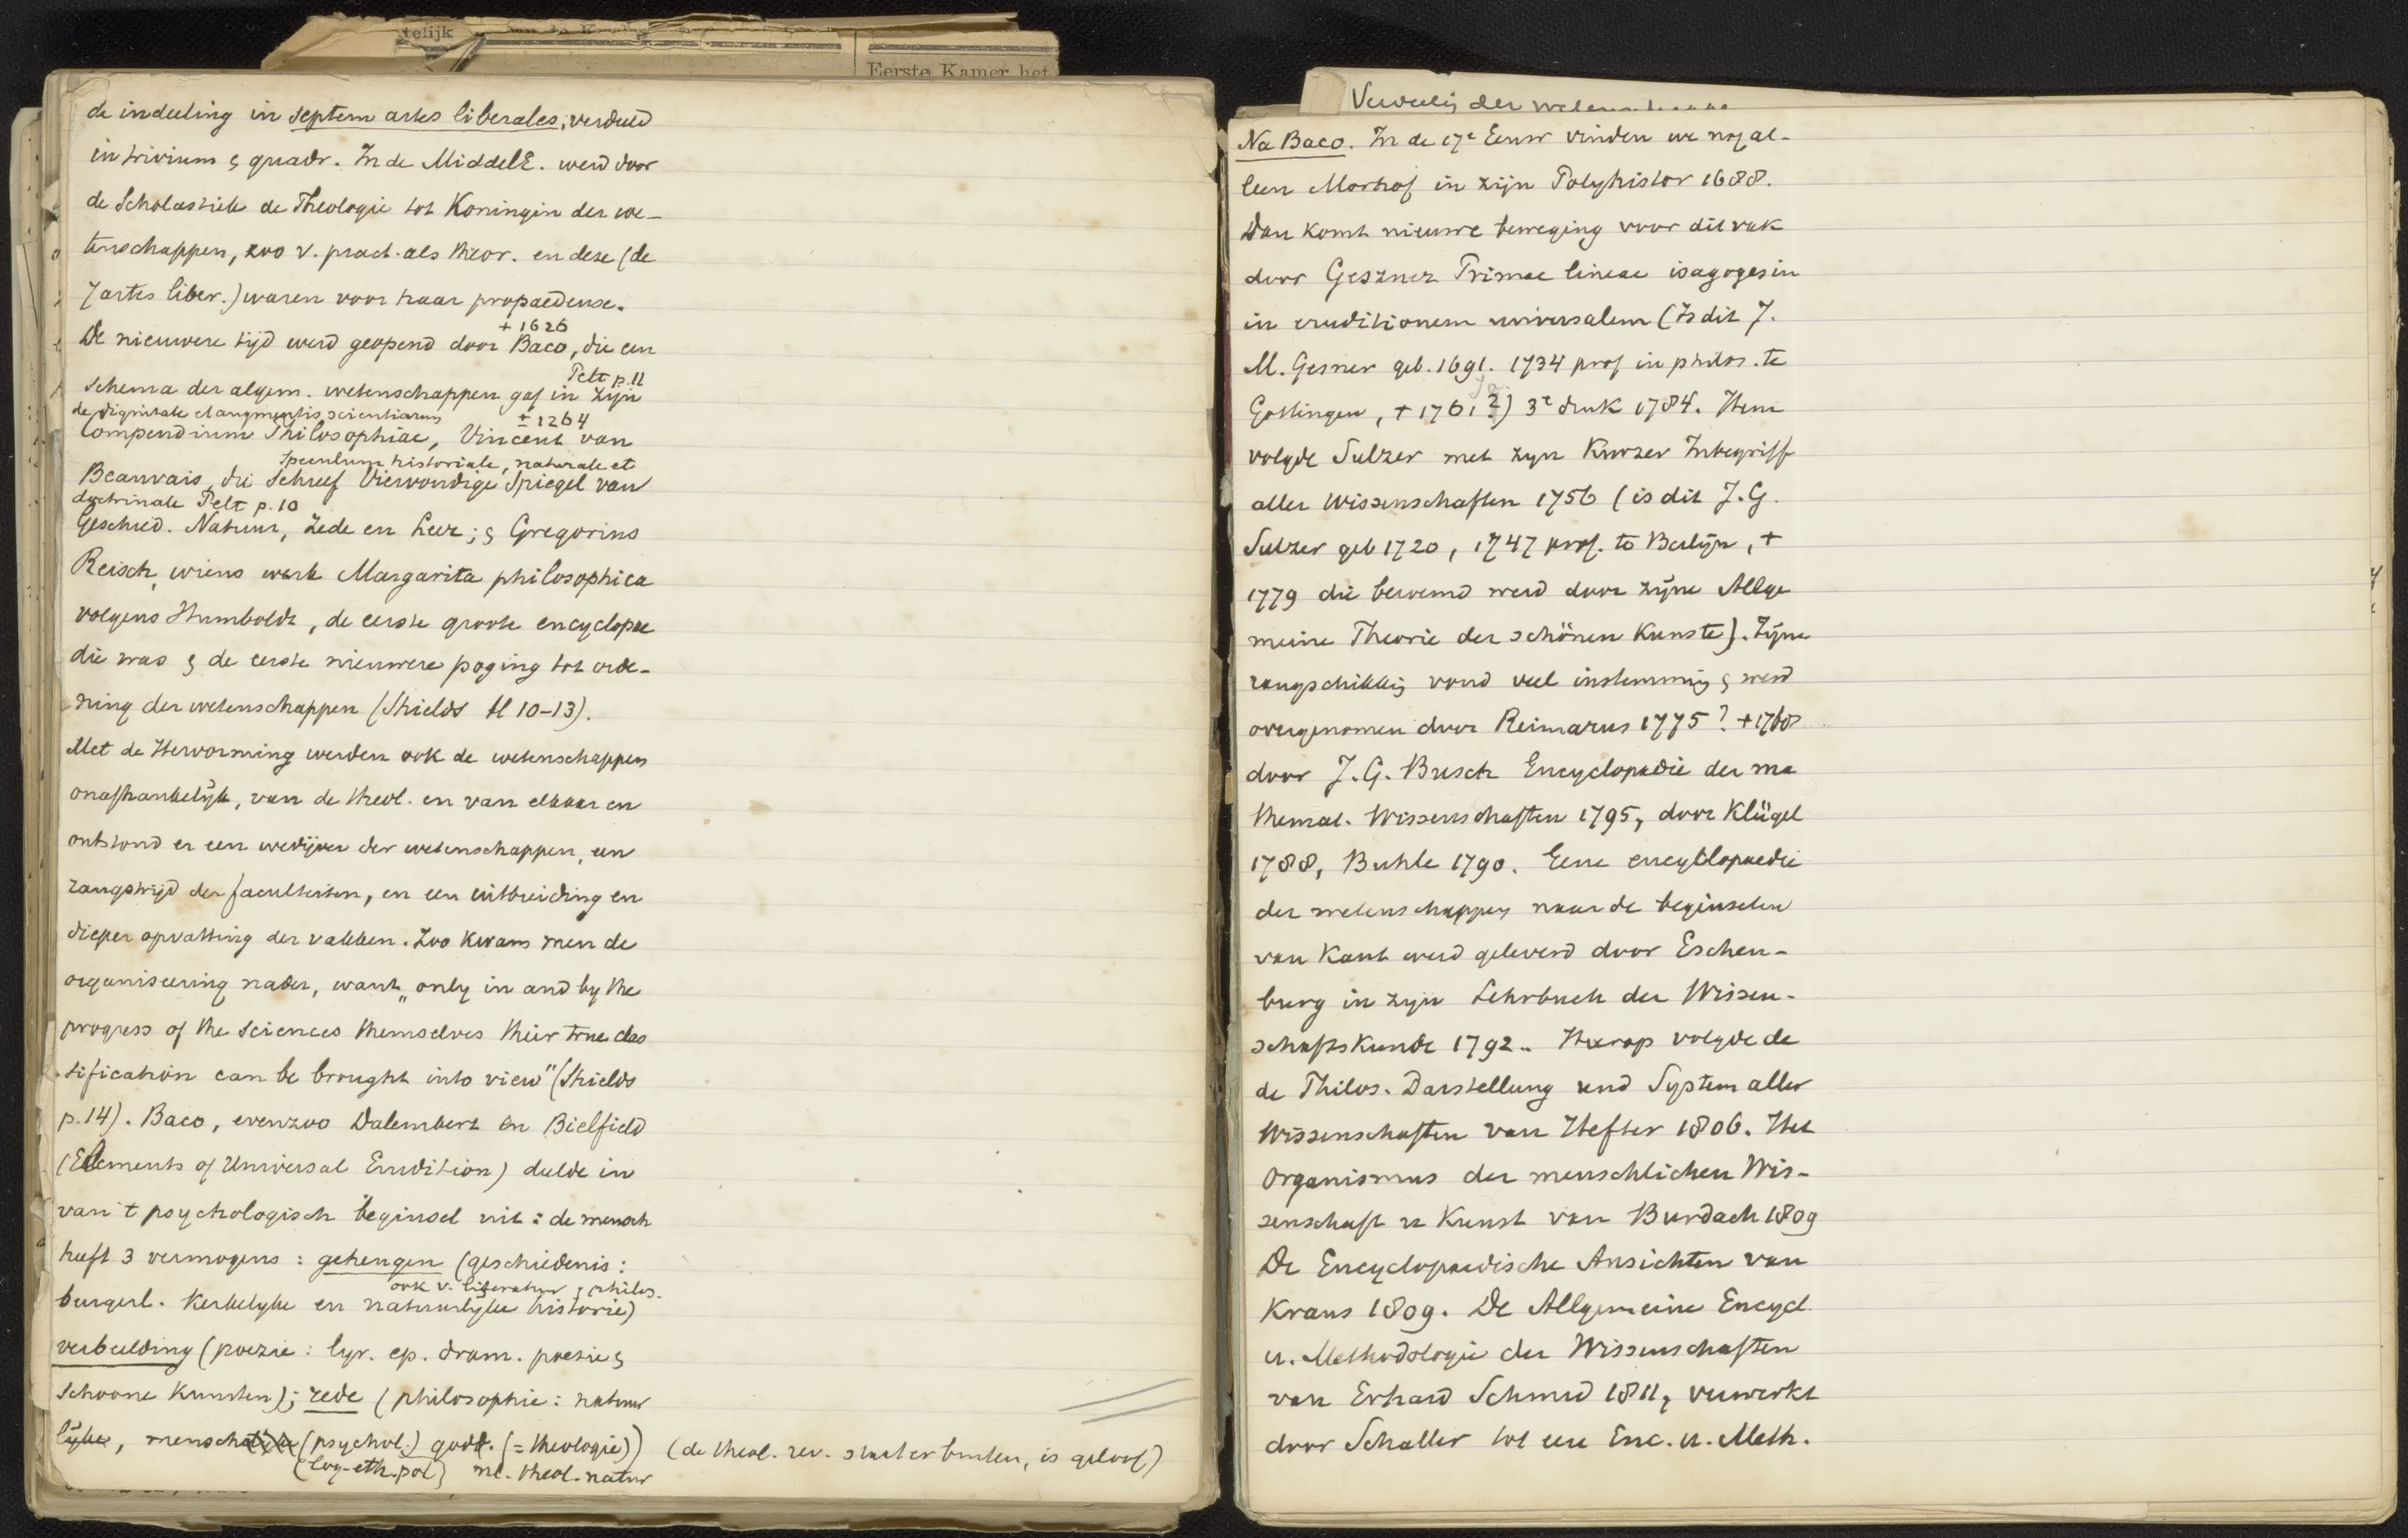 telijk
Eerste Kamer het
de indeeling in septem artes liberales, verdeeld
in trivium & quadr. In de MiddelE. werd door
de Scholastiek de Theologie tot Koningin der we-
tenschappen, zoo v. pract. als theor. en deze (de
7 artes liber.) waren voor haar propaedeuse.
+ 1626
De nieuwere tijd werd geopend door Baco, die een
Pelt p. 11
schema der algem. wetenschappen gaf in zijn
de dignitate et augmentis scientiarum ± 1264
Compendium Philosophiae, Vincent van
Speculum historiale, naturale et
Beauvais, die schreef Viervoudige Spiegel van
doctrinale Pelt p. 10
Geschied. Natuur, Zede en Leer; & Gregorius
Reisch, wiens werk Margarita philosophica
volgens Humboldt, de eerste groote encyclopae
die was & de eerste nieuwere poging tot orde-
ning der wetenschappen (Shields bl 10-13).
Met de Hervorming werden ook de wetenschappen
onafhankelijk, van de theol. en van elkaar en
ontstond er een wedijver der wetenschappen, een
rangstrijd der faculteiten, en een uitbreiding en
dieper opvatting der vakken. Zoo kwam men de
organiseering nader, want „only in and by the
progress of the sciences themselves their true clas
sification can be brought into view" (Shields
p. 14). Baco, evenzoo Dalembert en Bielfield
(Elements of Universal Erudition) deelde in
van 't psychologisch beginsel uit: de mensch
heeft 3 vermogens: geheugen (geschiedenis:
ook v. literatuur & philos.
burgerl. kerkelyke en natuurlyke historie)
verbeelding (poezie: lyr. ep. dram. poezie &
schoone kunsten); rede (philosophie: natuur
lijke, menschelijke (psychol.) godd. (= theologie)) (de theol. rev. staat er buiten, is geloof)
(log-eth-pol) nl. theol. natur
Verdeelig der wetenschappen
Na Baco. In de 17e Eeuw vinden we nog al-
leen Morhof in zijn Polyhistor 1688.
Dan komt nieuwe beweging voor dit vak
door Geszner Primae lineae isagoges in
in eruditionem universalem (Is dit J.
M. Gesner geb. 1691. 1734 prof in philos. te
ja.
Gottingen, + 1761?) 3e druk 1784. Hem
volgde Sulzer met zyn Kurzer Inbegriff
aller Wissenschaften 1756 (is dit J.G.
Sulzer geb 1720, 1747 prof. te Berlijn, +
1779 die beroemd werd door zijne Allge
meine Theorie der schönen Kunste). Zijne
rangschikkig vond veel instemming & werd
overgenomen door Reimarus 1775? + 1768
door J.G. Busch Encyclopadie der ma
themat. Wissenschaften 1795, door Klügel
1788, Buhle 1790. Eene encyclopaedie
der wetenschappen naar de beginselen
van Kant werd geleverd door Eschen-
burg in zyn Lehrbuch der Wissen-
schaftskunde 1792. Hierop volgde de
de Philos. Darstellung und System aller
Wissenschaften van Hefter 1806. Het
Organismus der menschlichen Wis-
senschaft u Kunst van Burdach 1809
De Encyclopaedische Ansichten van
Kraus 1809. De Allgemeine Encycl.
u. Methodologie der Wissenschaften
van Erhard Schmid 1811, verwerkt
door Schaller tot eene Enc. u. Meth.